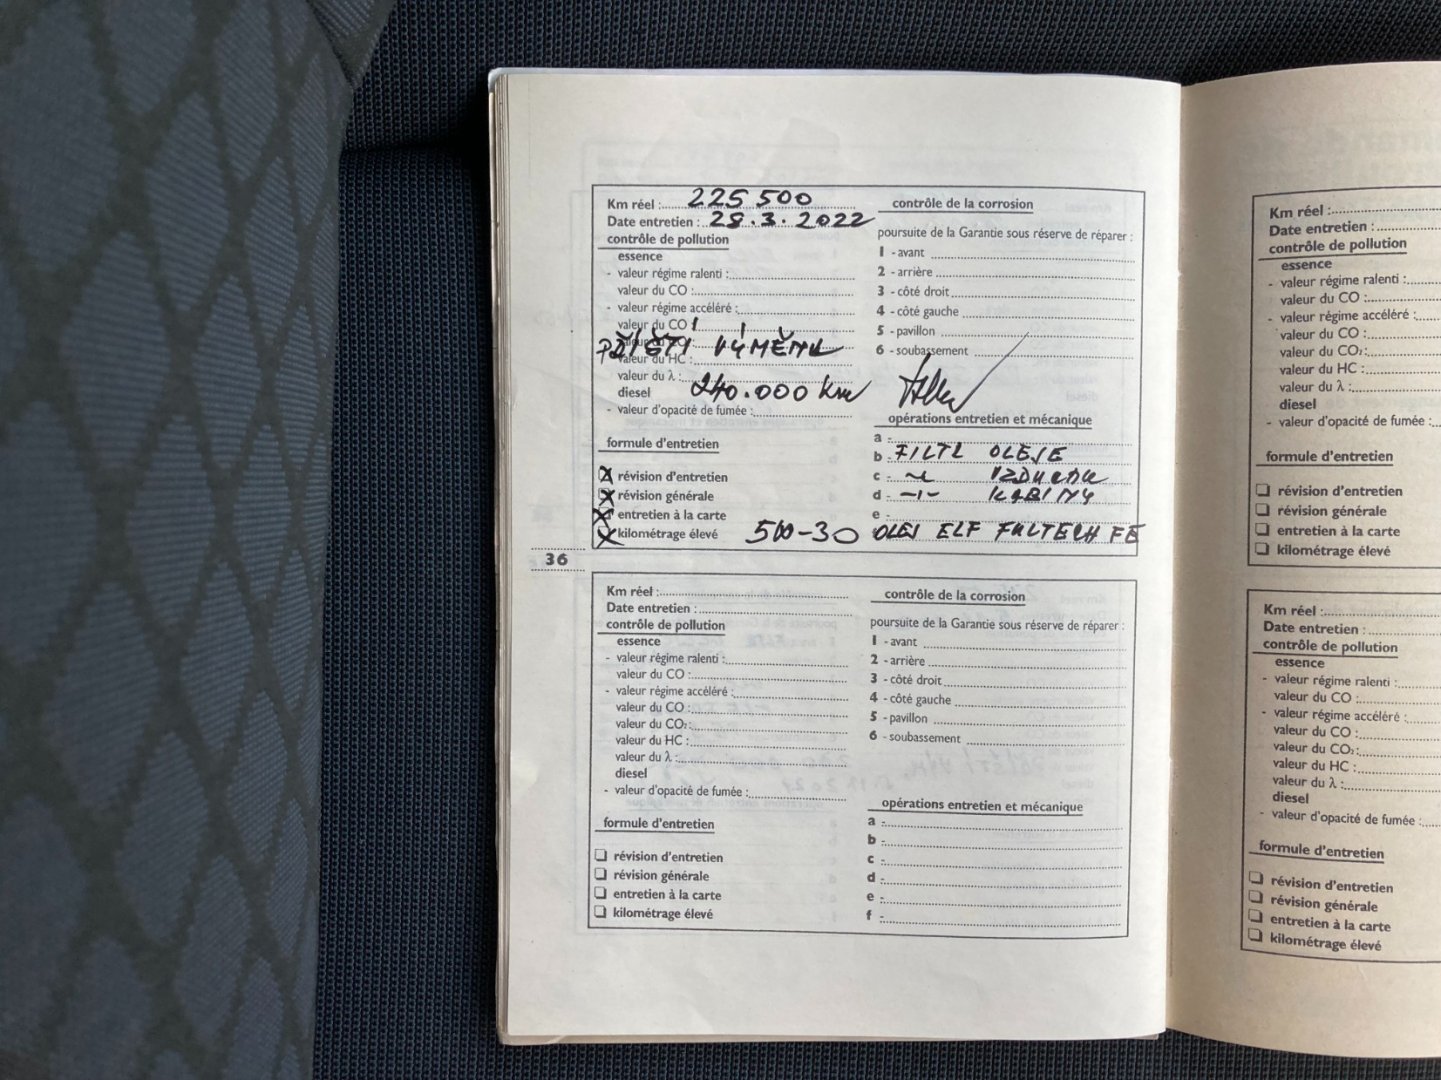 Km réel : 225 500
Date entretien : 28.3.2022
contrôle de pollution
essence
- valeur régime ralenti :
valeur du CO :
- valeur régime accéléré :
valeur du CO :
valeur du HC :
PŘÍŠTÍ VÝMĚNA
valeur du λ :
diesel 240.000 km
- valeur d'opacité de fumée :
formule d'entretien
révision d'entretien
révision générale
entretien à la carte
kilométrage élevé
contrôle de la corrosion
poursuite de la Garantie sous réserve de réparer :
1 - avant
2 - arrière
3 - côté droit
4 - côté gauche
5 - pavillon
6 - soubassement
opérations entretien et mécanique
a -
b - FILTR OLEJE
c - -"- VZDUCHU
d - -"- KABINY
e -
5W-30 OLEJ ELF FULTECH FE
36
Km réel :
Date entretien :
contrôle de pollution
essence
- valeur régime ralenti :
valeur du CO :
- valeur régime accéléré :
valeur du CO :
valeur du CO₂ :
valeur du HC :
valeur du λ :
diesel
- valeur d'opacité de fumée :
formule d'entretien
révision d'entretien
révision générale
entretien à la carte
kilométrage élevé
contrôle de la corrosion
poursuite de la Garantie sous réserve de réparer :
1 - avant
2 - arrière
3 - côté droit
4 - côté gauche
5 - pavillon
6 - soubassement
opérations entretien et mécanique
a -
b -
c -
d -
e -
f -
Km réel :
Date entretien :
contrôle de pollution
essence
- valeur régime ralenti :
valeur du CO :
- valeur régime accéléré :
valeur du CO :
valeur du CO₂ :
valeur du HC :
valeur du λ :
diesel
- valeur d'opacité de fumée :
formule d'entretien
révision d'entretien
révision générale
entretien à la carte
kilométrage élevé
Km réel :
Date entretien :
contrôle de pollution
essence
- valeur régime ralenti :
valeur du CO :
- valeur régime accéléré :
valeur du CO :
valeur du CO₂ :
valeur du HC :
valeur du λ :
diesel
- valeur d'opacité de fumée :
formule d'entretien
révision d'entretien
révision générale
entretien à la carte
kilométrage élevé